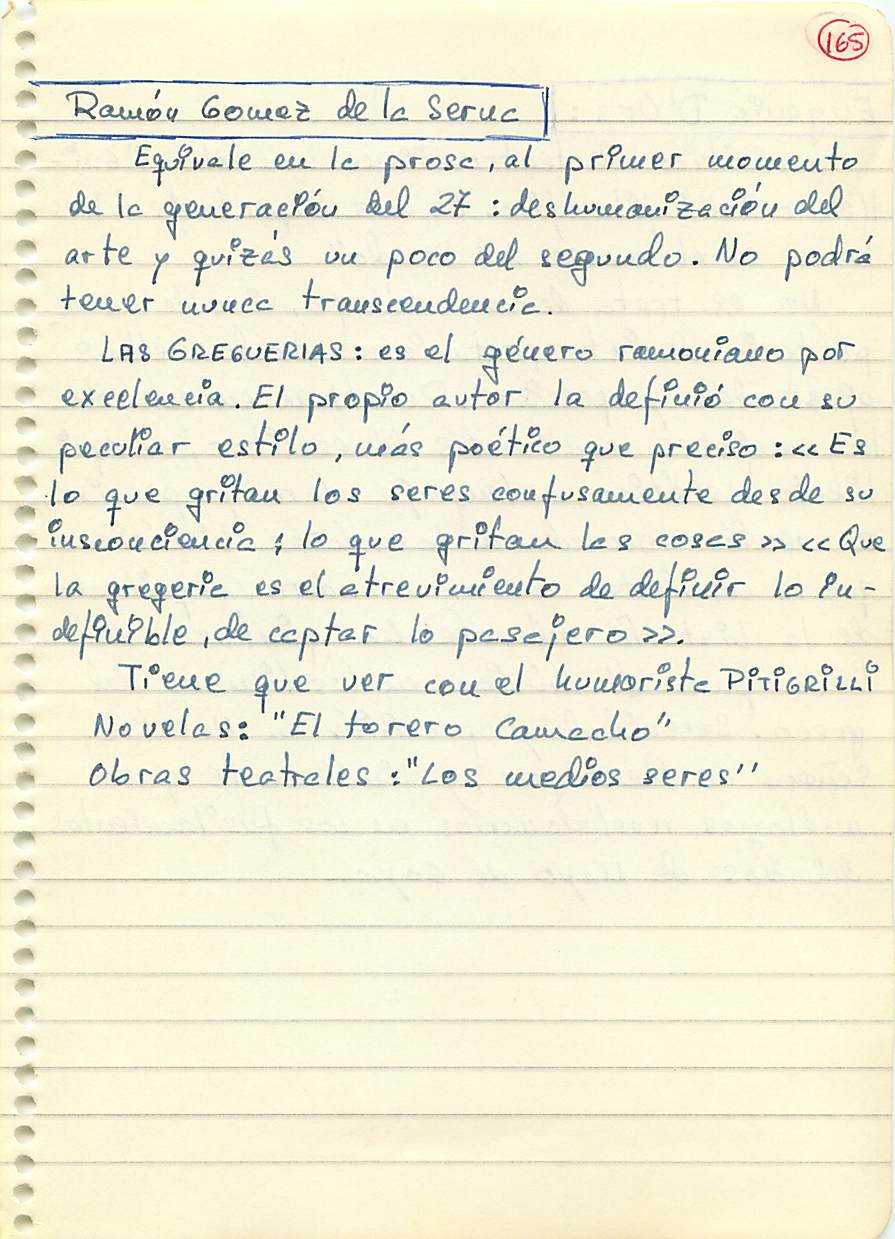 165
Ramón Gomez de la Serna
Equivale en la prosa, al primer momento
de la generación del 27 : deshumanización del
arte y quizás un poco del segundo. No podrá
tener nunca transcendencia.
LAS GREGUERIAS : es el género ramoniano por
excelencia. El propio autor la definió con su
peculiar estilo, más poético que preciso : << Es
lo que gritan los seres confusamente desde su
insconciencia ; lo que gritan las cosas >> << Que
la gregeria es el atrevimiento de definir lo in-
definible, de captar lo pasajero >>.
Tiene que ver con el humorista PITIGRILLI
Novelas: "El torero Camacho"
Obras teatrales : "Los medios seres"